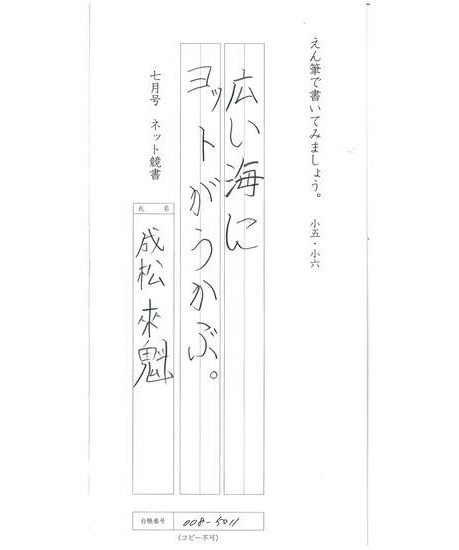 えん筆で書いてみましょう。 小五・小六
広い海に
ヨットがうかぶ。
七月号 ネット競書
氏 名
成松 來魁
台帳番号 008-5011
(コピー不可)